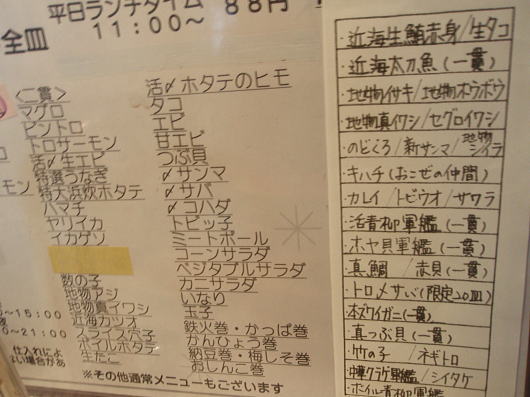 平日ランチタイム
11:00～
88円
全皿
<二貫>
マグロ
ビントロ
トロサーモン
活〆生エビ
特選うなぎ
特大浜炊ホタテ
ハマチ
ヤリイカ
イカゲソ
数の子
地物アジ
地物真イワシ
近海カツオ
フライ穴子
ボイルホタテ
生たこ
活〆ホタテのヒモ
タコ
エビ
甘エビ
つぶ貝
〆サンマ
〆サバ
〆コハダ
トビッ子
ミートボール
コーンサラダ
ベジタブルサラダ
カニサラダ
いなり
玉子
鉄火巻・かっぱ巻
かんぴょう巻
納豆巻・梅しそ巻
おしんこ巻
※その他通常メニューもございます
～15:00
～21:00
仕入れによ
ない場合があ
・近海生鮪赤身/生タコ
・近海太刀魚(一貫)
・地物イサキ/地物ホウボウ
・地物真イワシ/セグロイワシ
・のどくろ/新サンマ/地物シイラ
・キハチ(おこぜの仲間)
・カレイ/トビウオ/サワラ
・活青柳軍艦(一貫)
・ホヤ貝軍艦(一貫)
・真鯛/赤貝(一貫)
・トロメサバ(限定20皿)
・本ズワイガニ(一貫)
・真つぶ貝(一貫)
・竹の子/ネギトロ
・中華クラゲ軍艦/シイタケ
・ボイル青柳軍艦